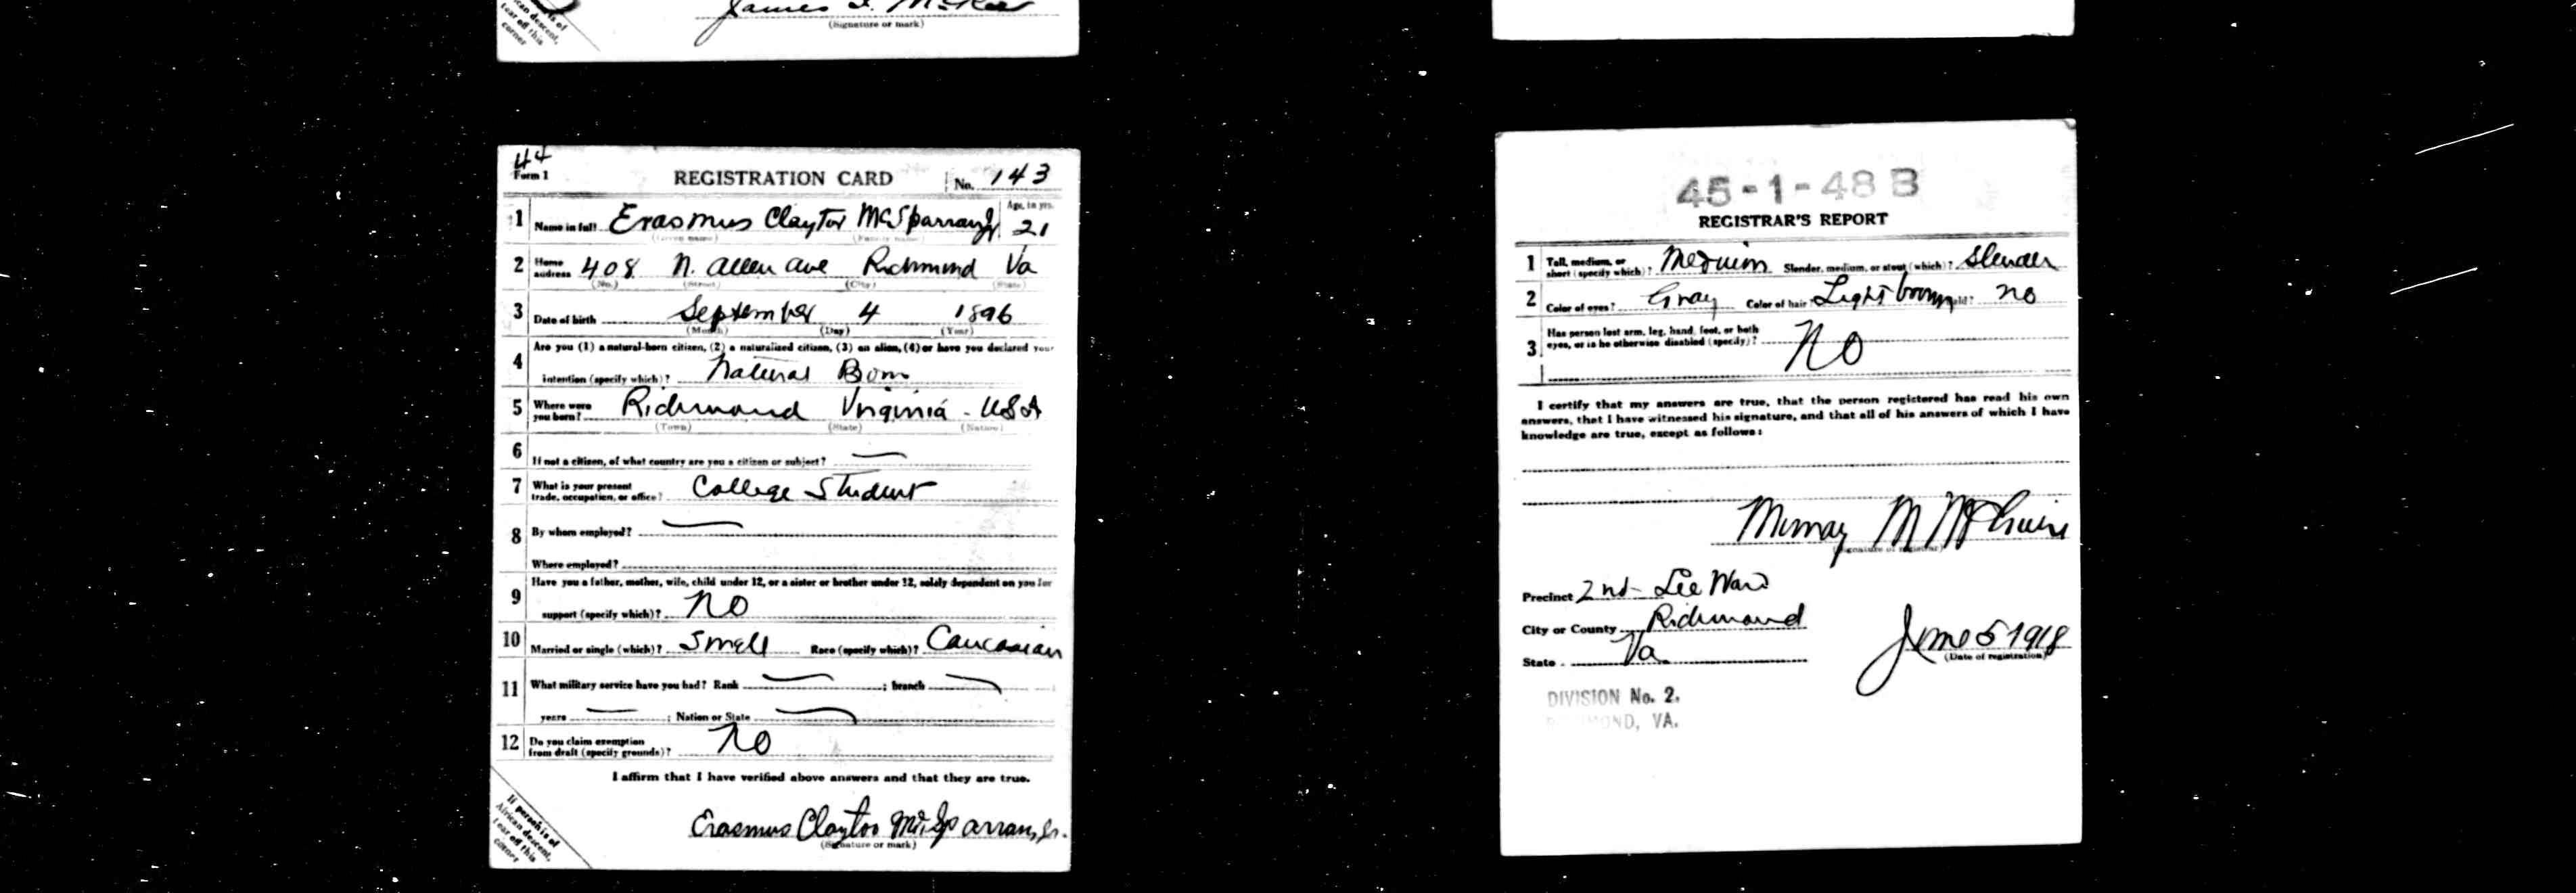 can descent,
tear off this
corner
James
(Signature or mark)
44
Form 1
REGISTRATION CARD
No. 143
1 Name in full Erasmus Clayton McSparran Jr
Age, in yrs.
21
(Given name) (Family name)
2 Home address 408 N. Allen Ave Richmond Va
(No.) (Street) (City) (State)
3 Date of birth September 4 1896
(Month) (Day) (Year)
Are you (1) a natural-born citizen, (2) a naturalized citizen, (3) an alien, (4) or have you declared your
4 intention (specify which)? Natural Born
5 Where were you born? Richmond Virginia - USA
(Town) (State) (Nation)
6 If not a citizen, of what country are you a citizen or subject? —
7 What is your present trade, occupation, or office? College Student
8 By whom employed? —
Where employed?
9 Have you a father, mother, wife, child under 12, or a sister or brother under 12, solely dependent on you for
support (specify which)? No
10 Married or single (which)? Single Race (specify which)? Caucasian
11 What military service have you had? Rank — ; branch — ;
years — ; Nation or State —
12 Do you claim exemption from draft (specify grounds)? No
I affirm that I have verified above answers and that they are true.
Erasmus Clayton McSparran, Jr.
(Signature or mark)
If person is of
African descent,
tear off this
corner
45-1-48 B
REGISTRAR'S REPORT
1 Tall, medium, or short (specify which)? Medium Slender, medium, or stout (which)? Slender
2 Color of eyes? Gray Color of hair? Light brown Bald? No
3 Has person lost arm, leg, hand, foot, or both
eyes, or is he otherwise disabled (specify)? No
I certify that my answers are true, that the person registered has read his own
answers, that I have witnessed his signature, and that all of his answers of which I have
knowledge are true, except as follows:
Murray M McGuire
(Signature of registrar)
Precinct 2nd - Lee Ward
City or County Richmond
State Va
June 5 1918
(Date of registration)
DIVISION No. 2.
RICHMOND, VA.